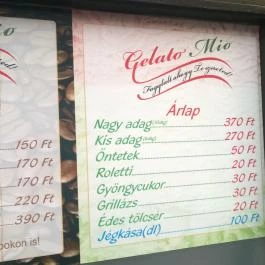 Gelato Mio
Fagylalt ahogy Te szereted!
Árlap
Nagy adag 370 Ft
Kis adag 270 Ft
Öntetek 50 Ft
Roletti 20 Ft
Gyöngycukor 30 Ft
Grillázs 30 Ft
Édes tölcsér 50 Ft
Jégkása(dl) 100 Ft
150 Ft
170 Ft
170 Ft
220 Ft
390 Ft
pokon is!